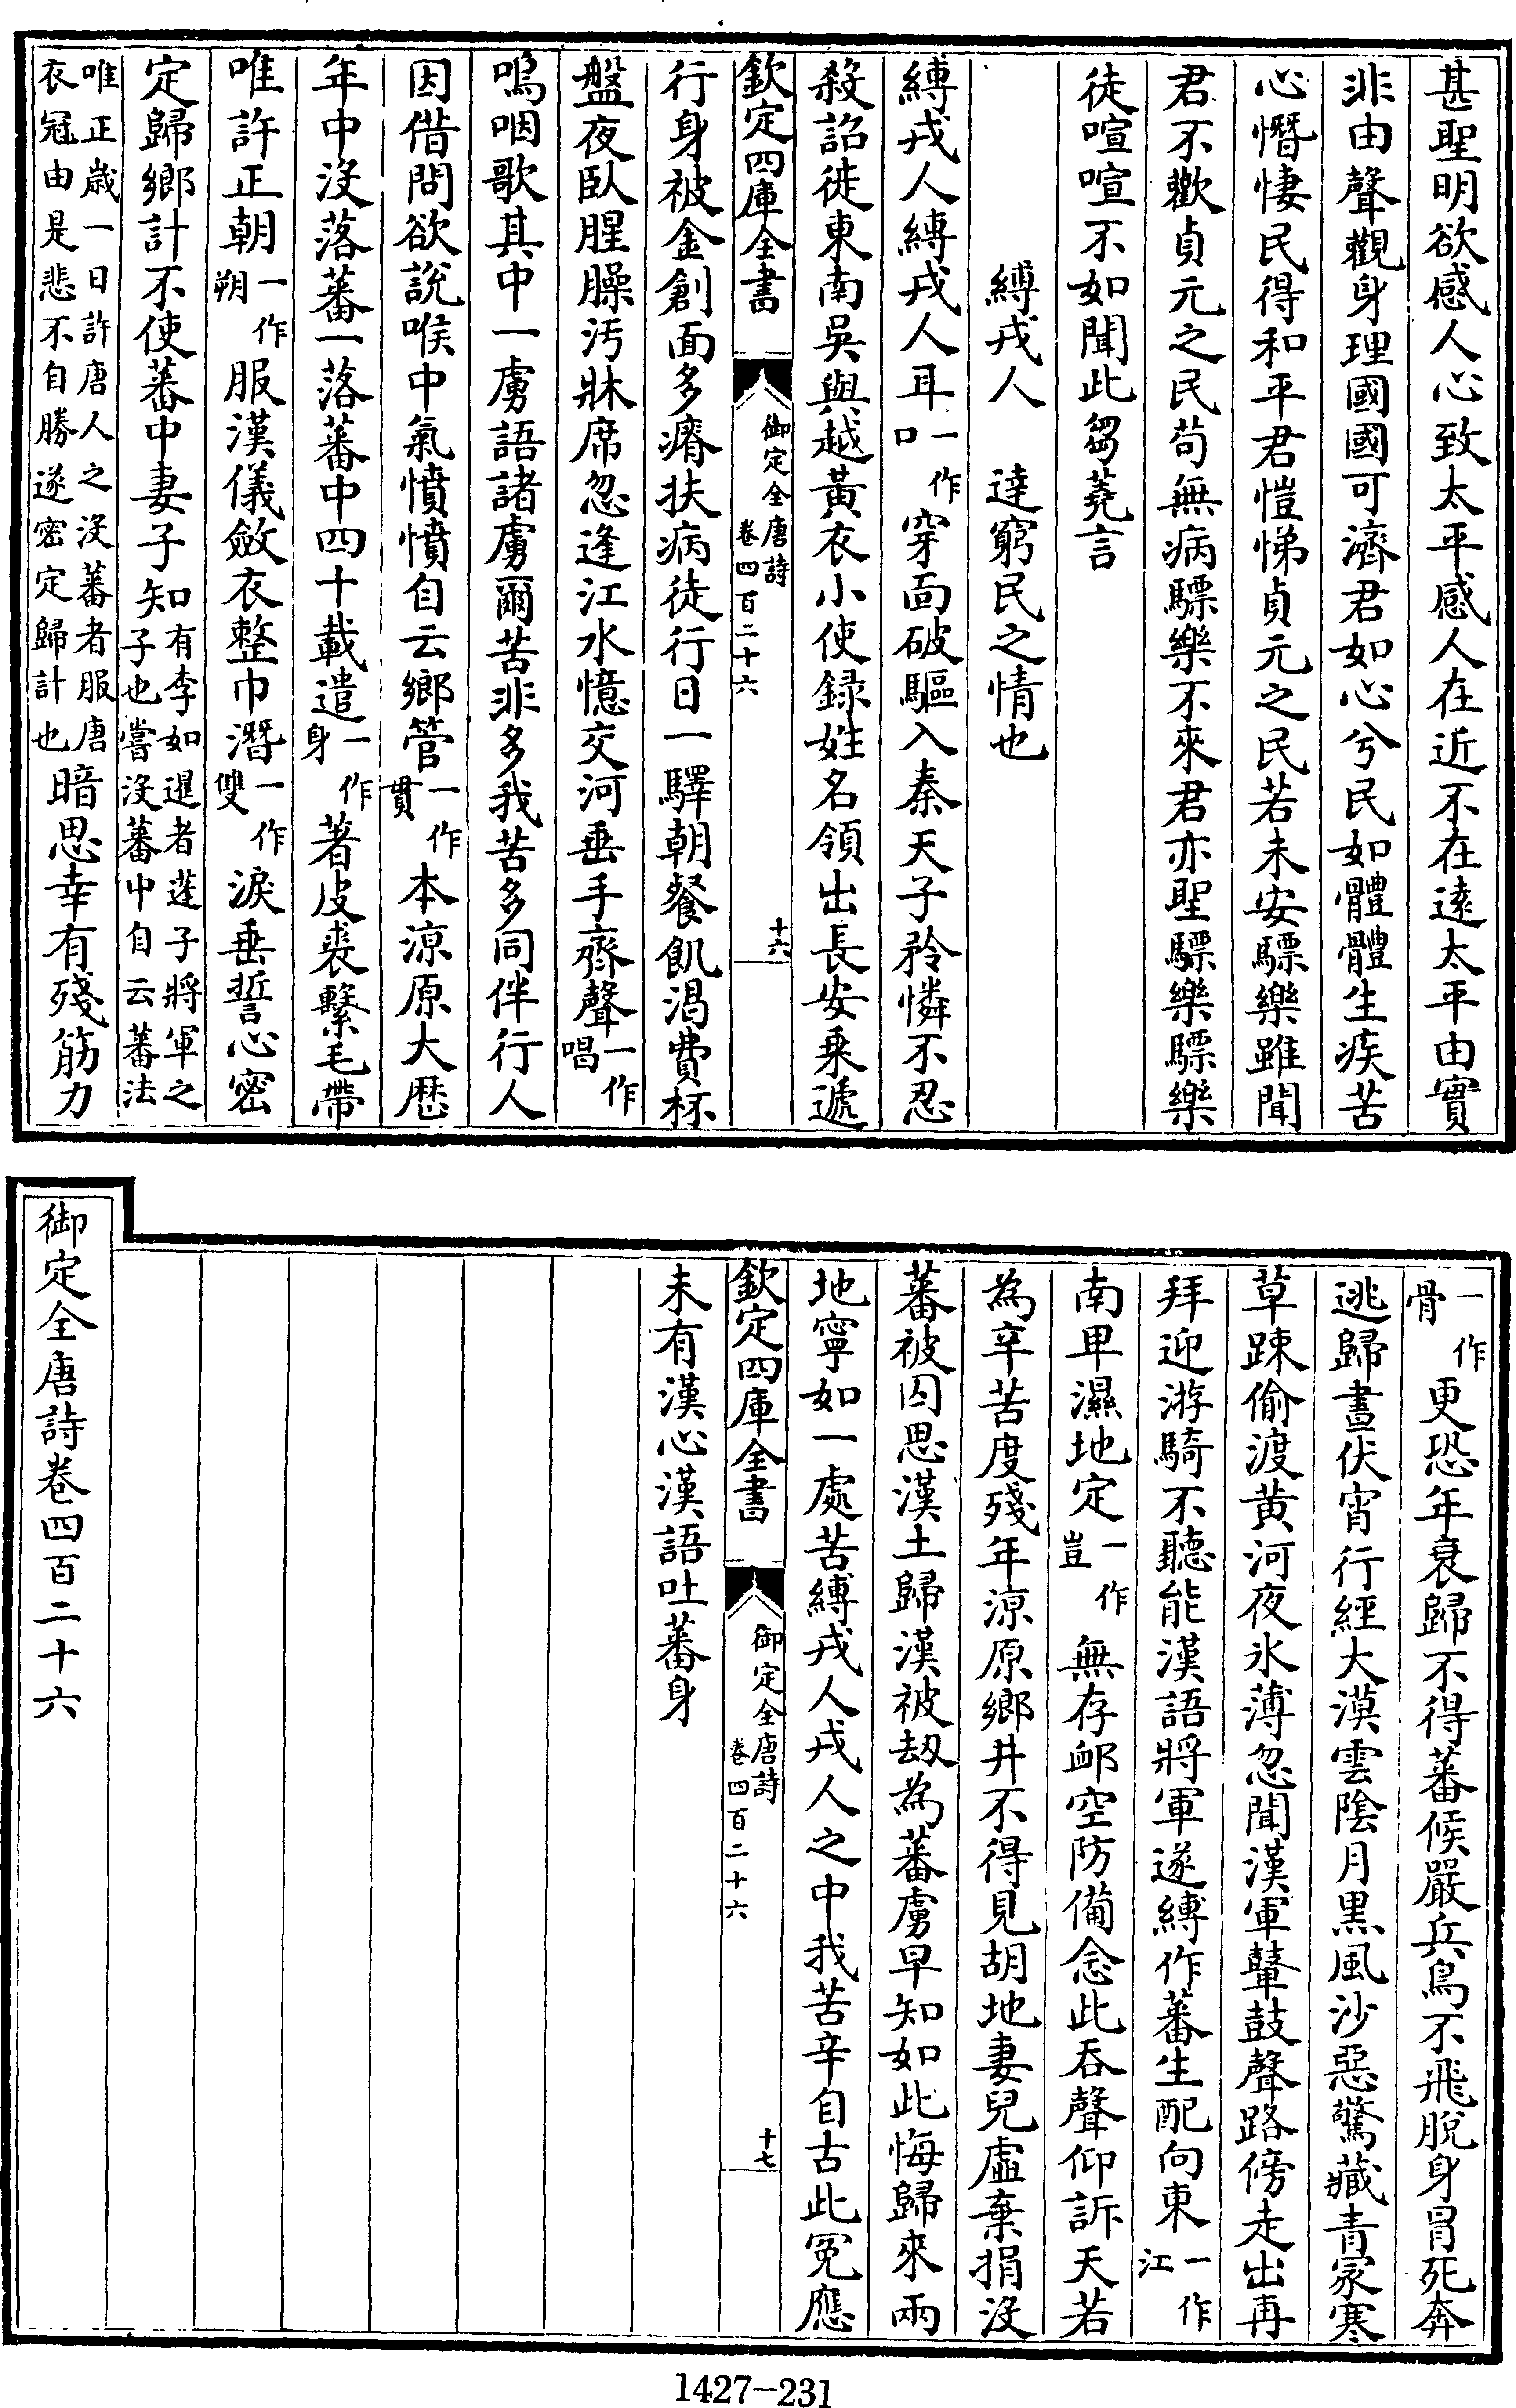 甚聖明欲感人心致太平感人在近不在遠太平由實
非由聲觀身理國國可濟君如心兮民如體體生疾苦
心憯悽民得和平君愷悌貞元之民若未安驃樂雖聞
君不歡貞元之民苟無病驃樂不來君亦聖驃樂驃樂
徒喧喧不如聞此芻蕘言
縛戎人　達窮民之情也
縛戎人縛戎人耳一作口穿面破驅入秦天子矜憐不忍
殺詔徙東南吳與越黃衣小使錄姓名領出長安乘遞
欽定四庫全書　御定全唐詩卷四百二十六　十六
行身被金創面多瘠扶病徒行日一驛朝餐飢渴費杯
盤夜臥腥臊汚牀席忽逢江水憶交河垂手齊聲一作唱
嗚咽歌其中一虜語諸虜爾苦非多我苦多同伴行人
因借問欲說喉中氣憤憤自云鄉管一作貫本涼原大歷
年中沒落蕃一落蕃中四十載遣一作身著皮裘繫毛帶
唯許正朝一作朔服漢儀斂衣整巾潛一作雙淚垂誓心密
定歸鄉計不使蕃中妻子知有李如暹者蓬子將軍之子也嘗沒蕃中自云蕃法
唯正歲一日許唐人之沒蕃者服唐衣冠由是悲不自勝遂密定歸計也暗思幸有殘筋力
一作骨更恐年衰歸不得蕃候嚴兵鳥不飛脫身冒死奔
逃歸晝伏宵行經大漠雲陰月黑風沙惡驚藏青冢寒
草踈偷渡黃河夜氷薄忽聞漢軍鼙鼓聲路傍走出再
拜迎游騎不聽能漢語將軍遂縛作蕃生配向東一作江
南卑濕地定一作豈無存邺空防備念此吞聲仰訴天若
為辛苦度殘年涼原鄉井不得見胡地妻兒虛棄捐沒
蕃被囚思漢土歸漢被刼為蕃虜早知如此悔歸來兩
地寧如一處苦縛戎人戎人之中我苦辛自古此冤應
欽定四庫全書　御定全唐詩卷四百二十六　十七
未有漢心漢語吐蕃身
御定全唐詩卷四百二十六
1427—231